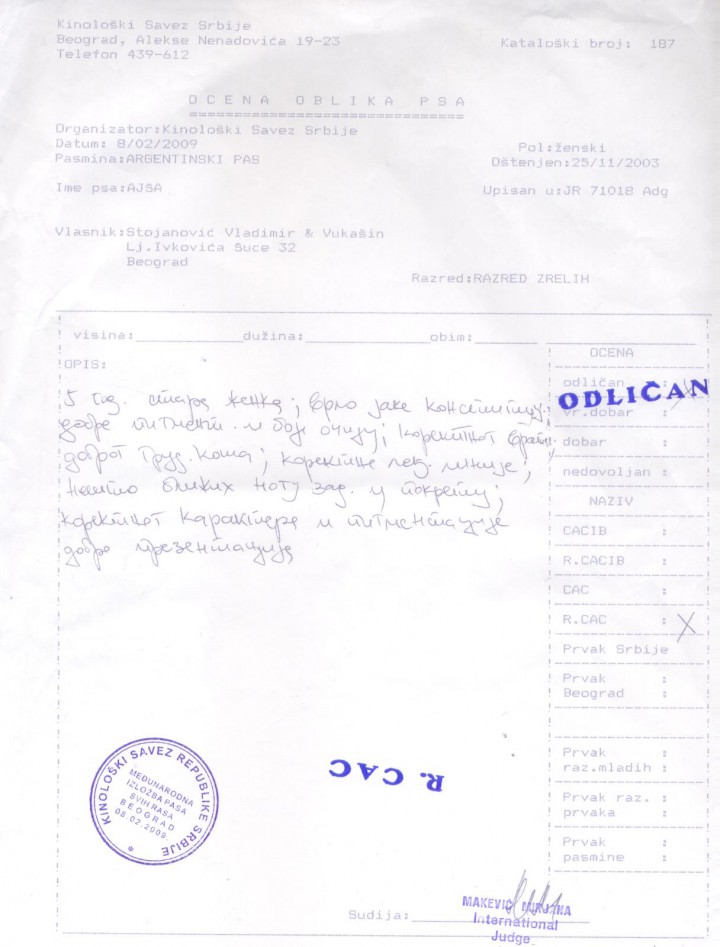 Kinološki Savez Srbije
Beograd, Alekse Nenadovića 19-23
Telefon 439-612
Kataloški broj: 187
OCENA OBLIKA PSA
Organizator:Kinološki Savez Srbije
Datum: 8/02/2009
Pasmina:ARGENTINSKI PAS
Pol:ženski
Oštenjen:25/11/2003
Ime psa:AJSA
Upisan u:JR 71018 Adg
Vlasnik:Stojanović Vladimir & Vukašin
Lj.Ivkovića Suce 32
Beograd
Razred:RAZRED ZRELIH
visina: dužina: obim:
OPIS:
5 год. стара женка; врло јаке конституц.
добре пигмент. и боје очију; коректног
доброг груд. коша; коректне леђ. линије;
нешто блиских ногу зад. у покрету;
коректног карактера и пигментације
добре презентације
OCENA
odličan :
ODLIČAN
vr.dobar :
dobar :
nedovoljan :
NAZIV
CACIB :
R.CACIB :
CAC :
R.CAC : X
Prvak Srbije
Prvak :
Beograd :
Prvak :
raz.mladih :
Prvak raz. :
prvaka :
Prvak :
pasmine :
R. CAC
KINOLOŠKI SAVEZ REPUBLIKE SRBIJE
MEĐUNARODNA
IZLOŽBA PASA
SVIH RASA
BEOGRAD
08.02.2009
Sudija:
MAKEVIĆ MIRJANA
International
Judge